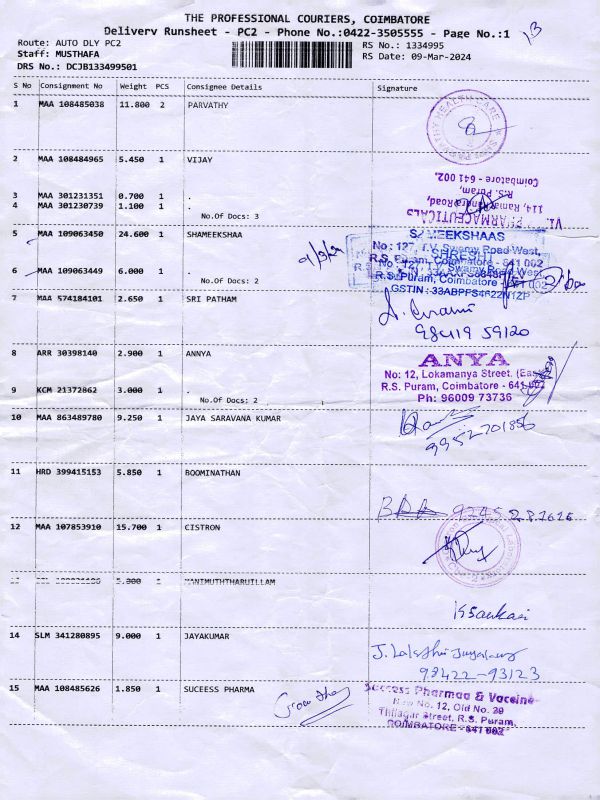 THE PROFESSIONAL COURIERS, COIMBATORE
Delivery Runsheet - PC2 - Phone No.:0422-3505555 - Page No.:1
13
Route: AUTO DLY PC2
RS No.: 1334995
Staff: MUSTHAFA
RS Date: 09-Mar-2024
DRS No.: DCJB133499501
S No Consignment No Weight PCS Consignee Details Signature
1 MAA 108485038 11.800 2 PARVATHY
HEALTH CARE
2 MAA 108484965 5.450 1 VIJAY
PHARMACEUTICALS
114,
R.S. Puram,
Coimbatore - 641 002.
3 MAA 301231351 0.700 1 .
4 MAA 301230739 1.100 1 .
No.Of Docs: 3
5 MAA 109063450 24.600 1 SHAMEEKSHAA
9/3/24
SAMEEKSHAAS
No: 127, T.V. Swamy Road West,
R.S. Puram, Coimbatore - 641 002
6 MAA 109063449 6.000 1 .
No.Of Docs: 2
SHRESHT
Swamy Road West
R.S. Puram, Coimbatore - 641 002
GSTIN : 33ABPFS4622N1ZP
7 MAA 574184101 2.650 1 SRI PATHAM
98419 59120
8 ARR 30398140 2.900 1 ANNYA
ANYA
No: 12, Lokamanya Street. (East)
R.S. Puram, Coimbatore - 641 002
Ph: 96009 73736
9 KCM 21372862 3.000 1 .
No.Of Docs: 2
10 MAA 863489780 9.250 1 JAYA SARAVANA KUMAR
9952701856
11 HRD 399415153 5.850 1 BOOMINATHAN
12 MAA 107853910 15.700 1 CISTRON
5.300 1 MANIMUTHTHARUILLAM
K Sankari
14 SLM 341280895 9.000 1 JAYAKUMAR
98422-93123
15 MAA 108485626 1.850 1 SUCEESS PHARMA
Success Pharmaa & Vaccine
New No. 12, Old No. 39
Thilagar Street, R.S. Puram,
COIMBATORE - 641 002